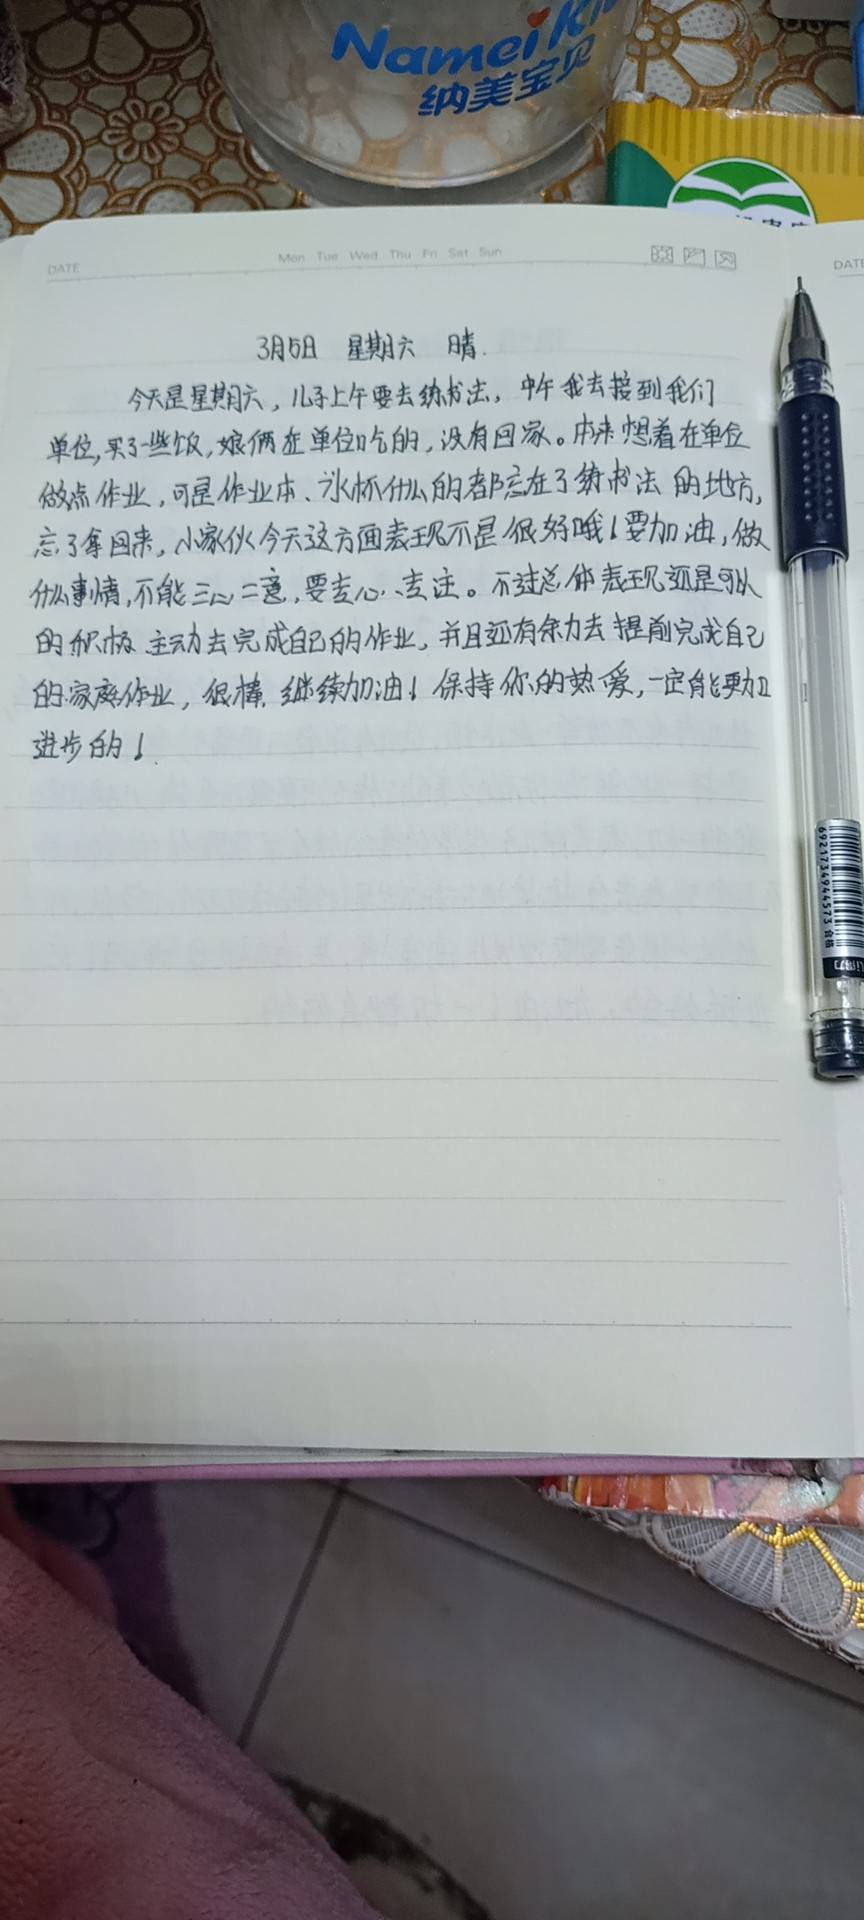 Namei Ki
纳美宝贝
DATE
Mon Tue Wed Thu Fri Sat Sun
DATE
3月5日 星期六 晴.
今天是星期六,儿子上午要去练书法,中午我去接到我们
单位,买了一些饭,娘俩在单位吃的,没有回家。本来想着在单位
做点作业,可是作业本、水杯什么的都忘在了练书法的地方,
忘了拿回来,小家伙今天这方面表现不是很好哦!要加油,做
什么事情,不能三心二意,要专心、专注。不过总体表现还是可以
的积极主动去完成自己的作业,并且还有余力去提前完成自己
的家庭作业,很棒.继续加油!保持你的热爱,一定能更加
进步的!
6921734944573
合格
得力